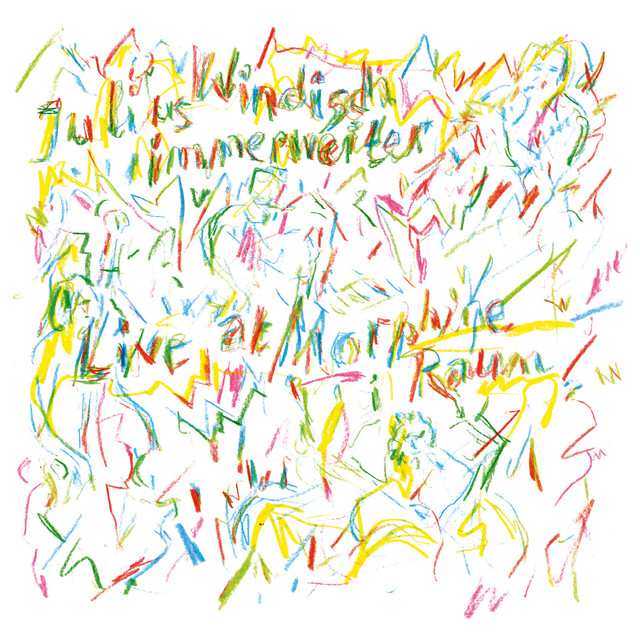 Julius Windisch
immerweiter
Live at Morphine
Raum